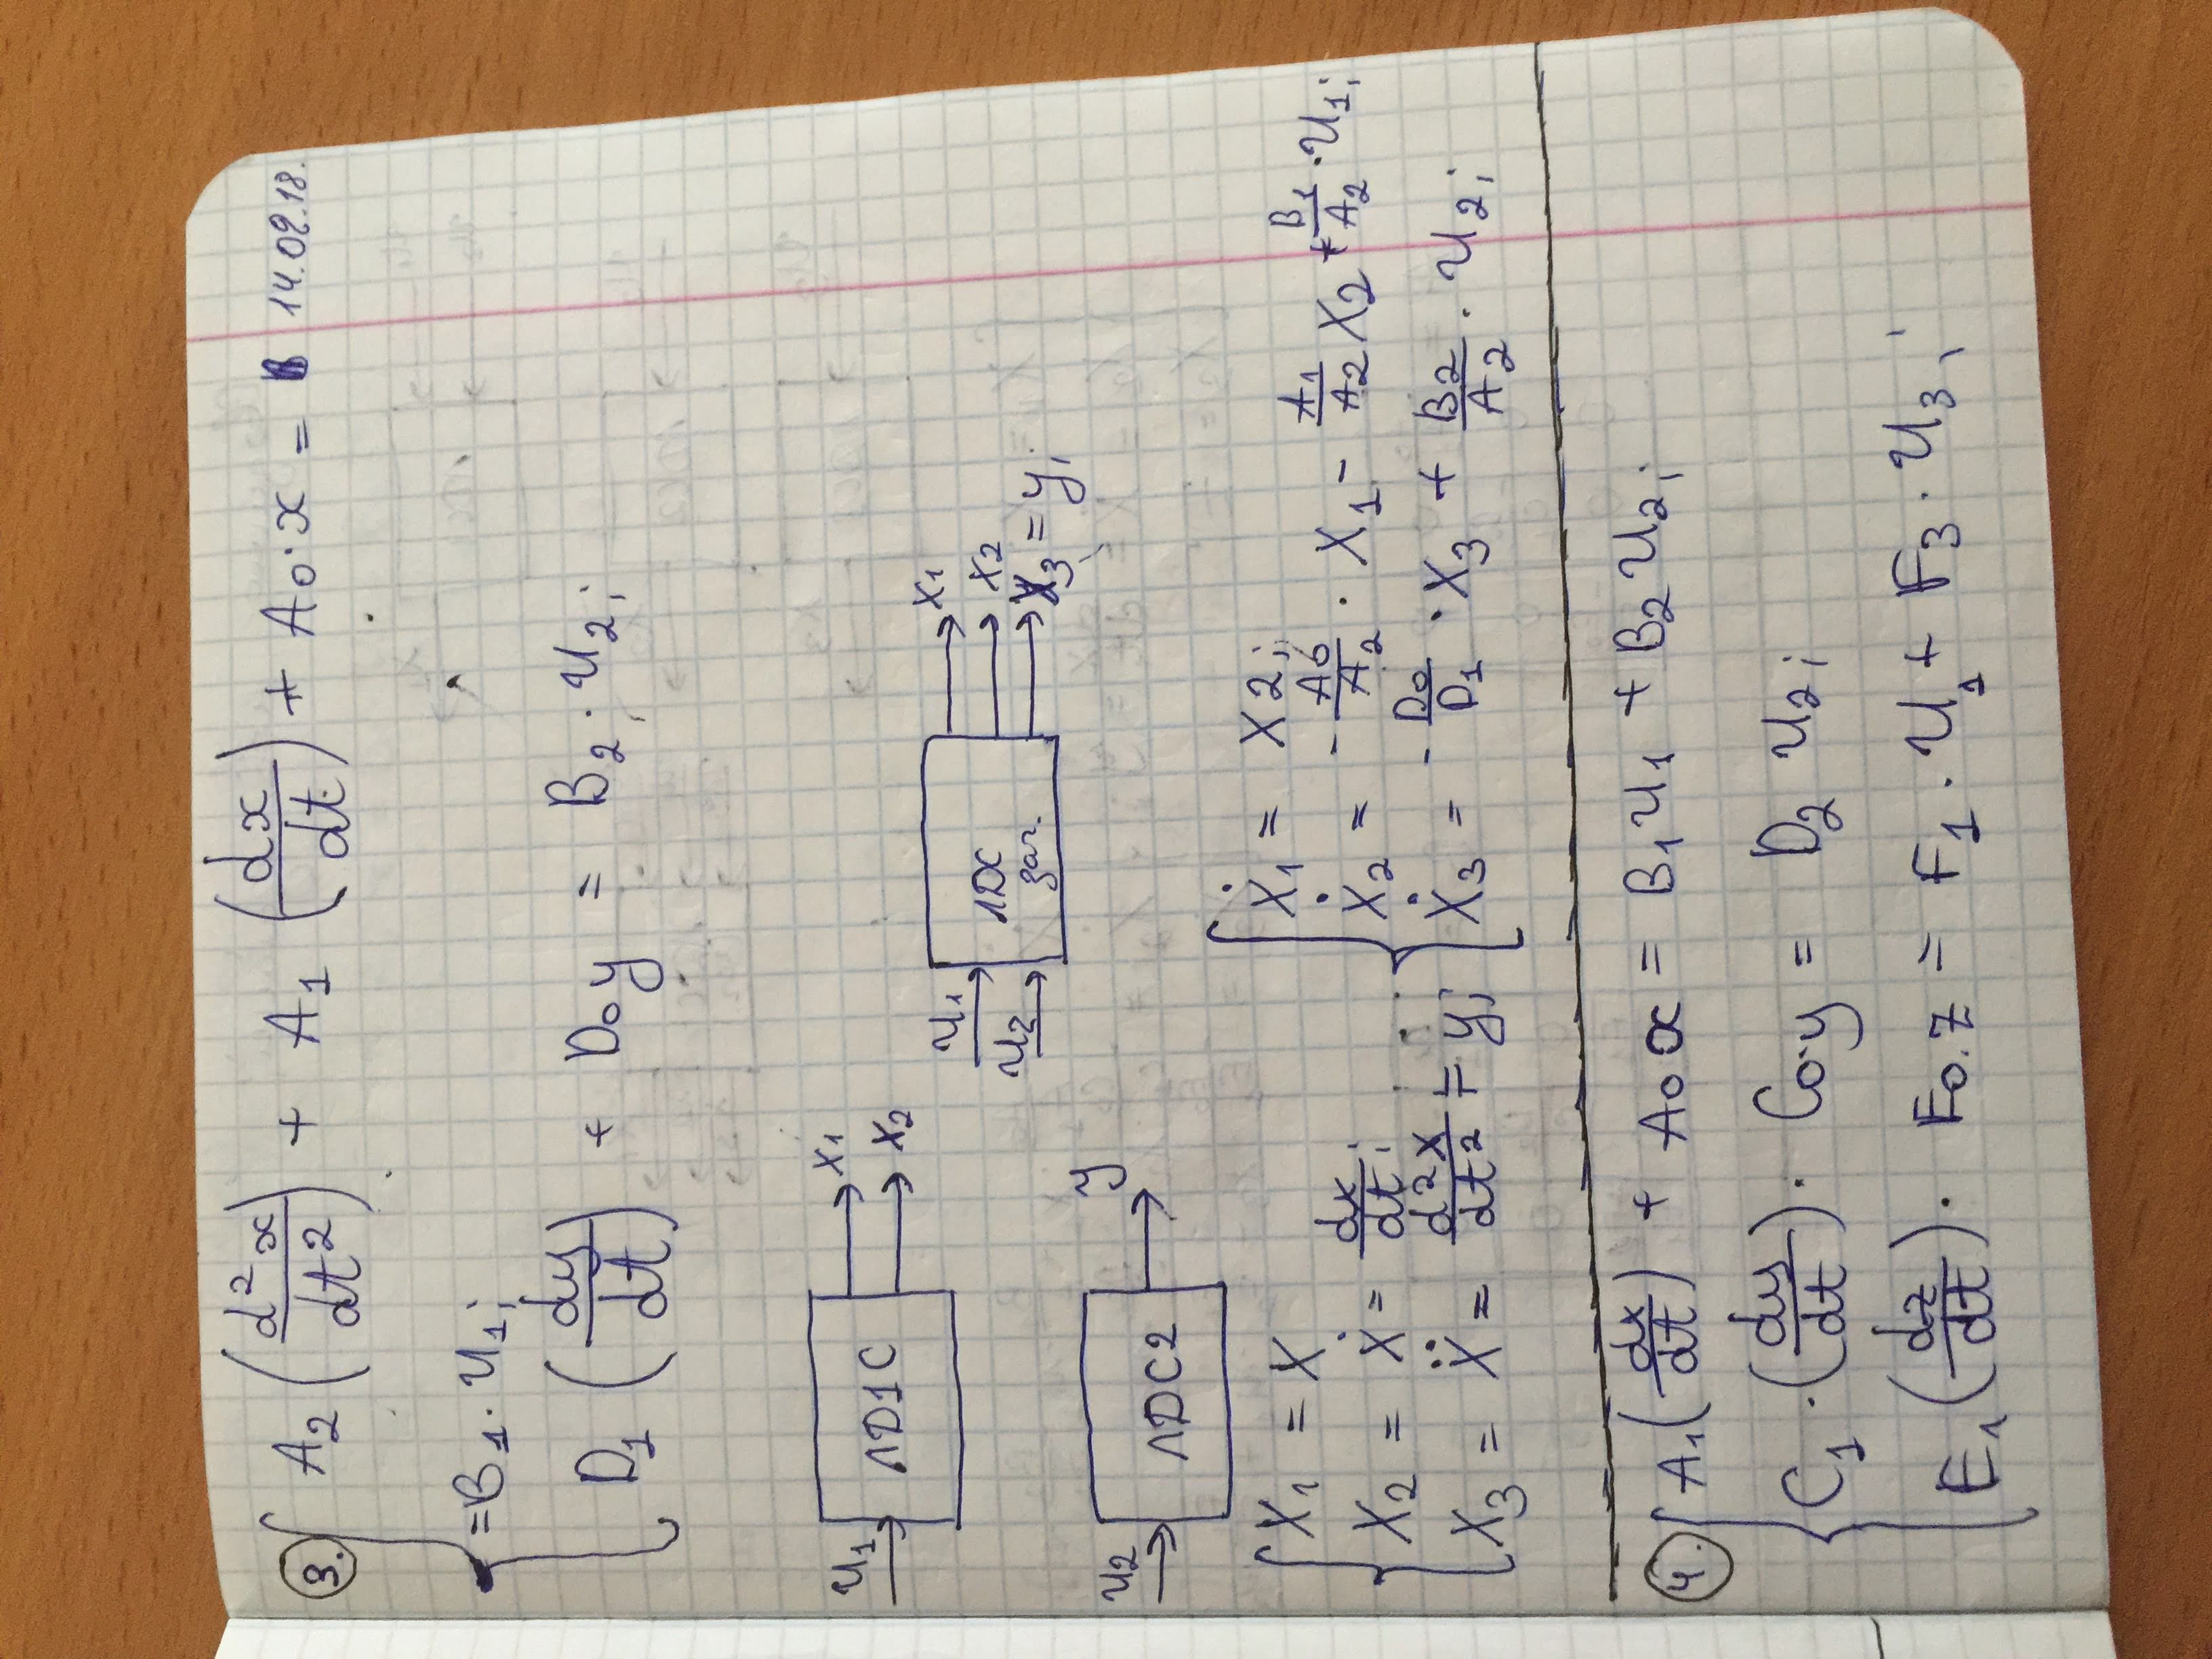 3. A₂(d²x/dt²) + A₁(dx/dt) + A₀·x = 14.09.18.
=B₁·U₁;
D₁(dy/dt) + D₀y = B₂·U₂;
U₁ ЛD1C X₁
X₂
U₁ ЛDC заг. X₁
U₂ X₂
X₃ = y;
U₂ ЛDC2 y
X₁ = X
X₂ = Ẋ = dx/dt;
X₃ = Ẍ = d²x/dt² = y;
Ẋ₁ = X2;
Ẋ₂ = -A₀/A₂ · X₁ - A₁/A₂ X₂ + B₁/A₂ · U₁;
Ẋ₃ = -D₀/D₁ · X₃ + B₂/A₂ · U₂;
4. A₁(dx/dt) + A₀x = B₁U₁ + B₂U₂;
C₁·(dy/dt)· C₀·y = D₂ U₂;
E₁(dz/dt)· E₀.z = F₁·U₁ + F₃·U₃;